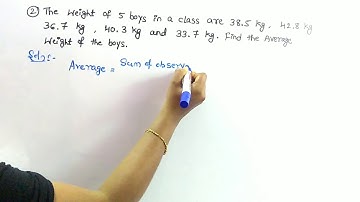 ② The weight of 5 boys in a class are 38.5 kg, 41.8 kg
36.7 kg, 40.3 kg and 33.7 kg. Find the Average
Weight of the boys.
Soln:-
Average = Sum of observ